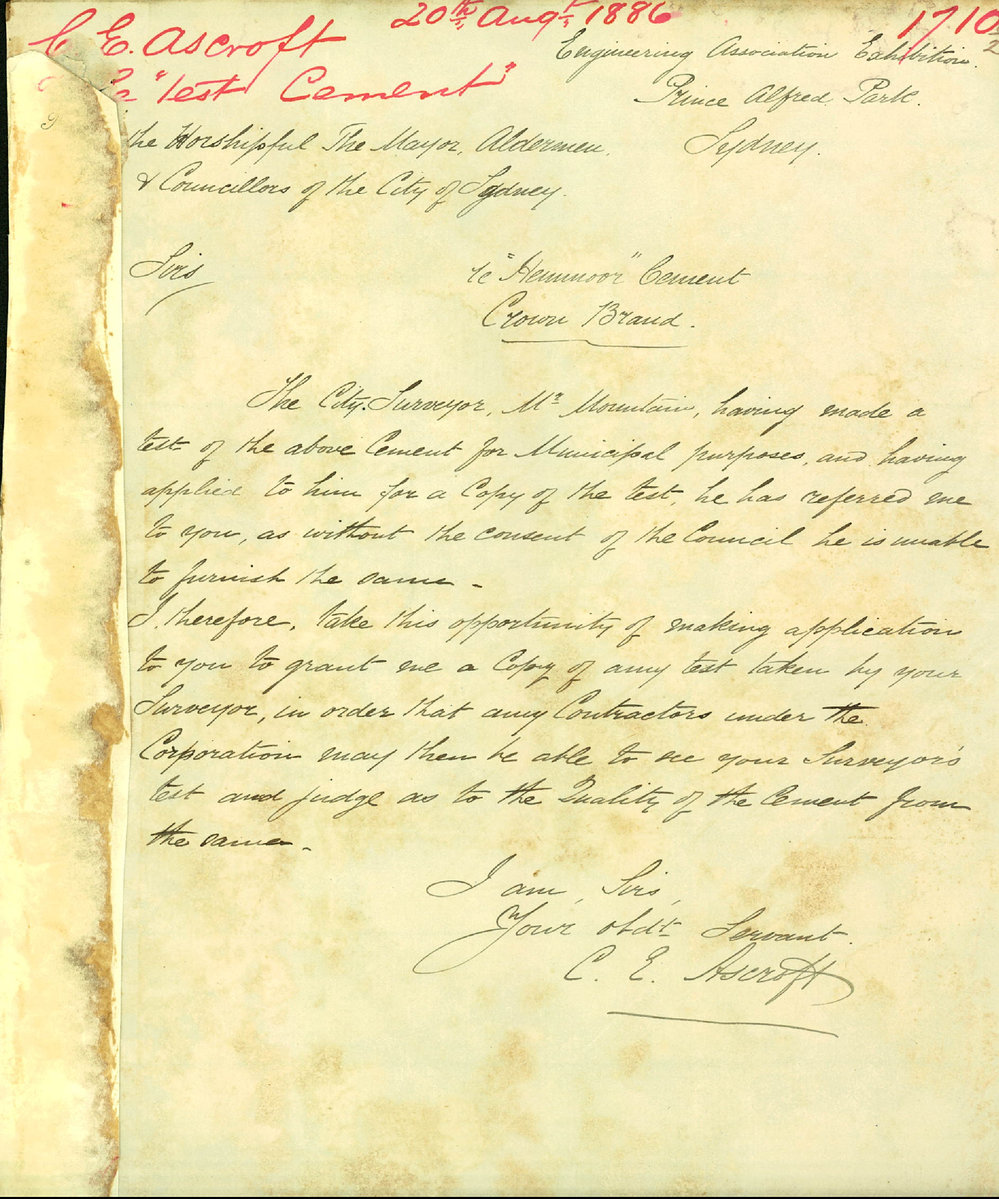 20th Augt 1886
1710
2
C. E. Ascroft
Re "Test Cement"
Engineering Association Exhibition.
Prince Alfred Park.
Sydney.
the Worshipful The Mayor, Aldermen,
& Councillors of the City of Sydney.
Sirs
re "Hemmoor" Cement
Crown Brand.
The City Surveyor, Mr Mountain, having made a
test of the above Cement for Municipal purposes, and having
applied to him for a Copy of the test, he has referred me
to you, as without the consent of the Council he is unable
to furnish the same -
I, therefore, take this opportunity of making application
to you to grant me a Copy of any test taken by your
Surveyor, in order that any Contractors under the
Corporation may then be able to see your Surveyor's
test and judge as to the Quality of the Cement from
the same -
I am, Sirs,
Your obdt Servant.
C. E. Ascroft